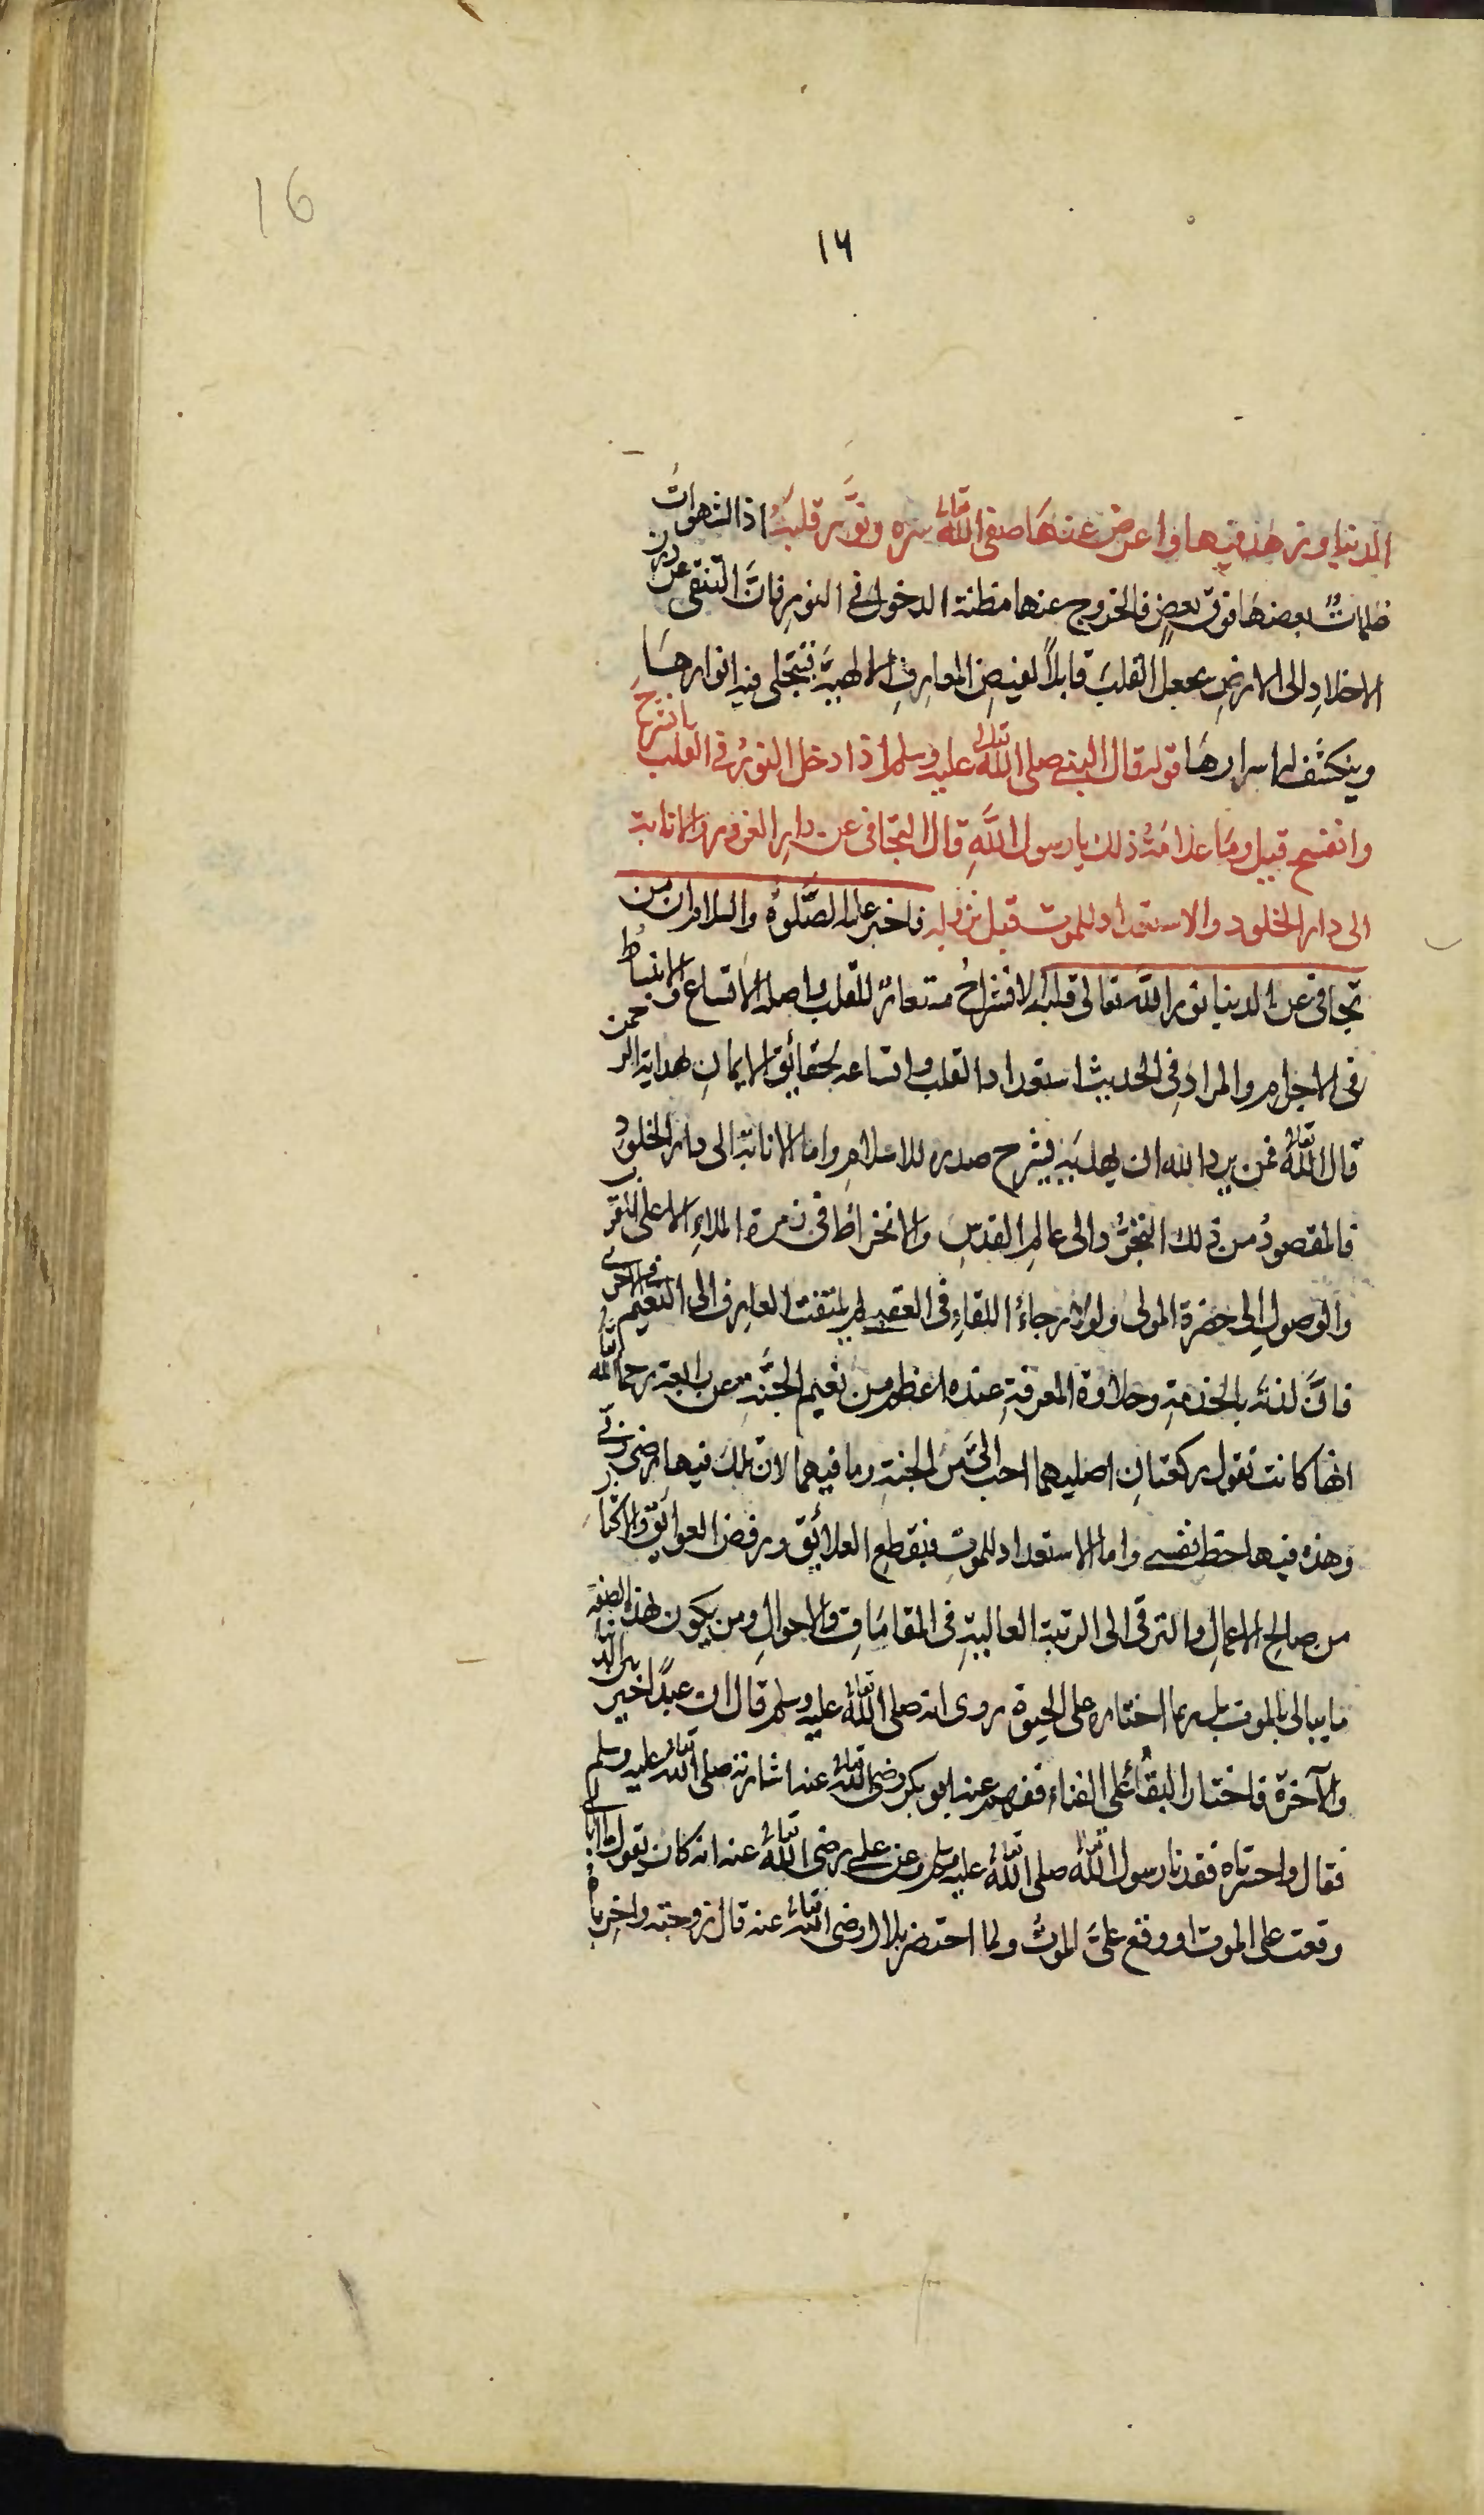 16
١٦
الدنيا وزهد فيها واعرض عنها صفى الله تعالى سره ونوّر قلبه اذ الشهوات
ظلمات بعضها فوق بعض فالخروج عنها مظنة الدخول فى النور فانّ التنقى عن درن
الاخلاد الى الارض يجعل القلب قابلاً لفيض المعارف الالهية فتتجلى فيه انوارها
وينكشف له اسرارها قوله قال النبى صلى الله تعالى عليه وسلم اذا دخل النور فى القلب انشرح
وانفسح قيل وما علامة ذلك يا رسول الله قال التجافى عن دار الغرور والانابة
الى دار الخلود والاستعداد للموت قبل نزوله فاخبر عليه الصلوة والسلام ان من
تجافى عن الدنيا نور الله تعالى قلبه الانشراح مستعار للقلب واصله الاتساع والانبساط
فى الاجرام والمراد فى الحديث استعداد القلب واتساعه لحقائق الايمان لهداية الرحمن
قال الله تعالى فمن يرد الله ان يهديه يشرح صدره للاسلام واما الانابة الى دار الخلود
فالمقصود من ذلك التجرد الى عالم القدس والانخراط فى زمرة الملاء الاعلى للتقرب
والوصول الى حضرة المولى ولولا رجاء اللقاء فى العقبى لم يلتفت العارف الى النعيم فى الاخرى
فانّ لذته بالخدمة وحلاوة المعرفة عنده اعظم من نعيم الجنة عن رابعة رحمها الله تعالى
انها كانت تقول ركعتان اصليهما احب الىّ من الجنة وما فيهما لان تلك فيها رضى ربى
وهذه فيها حظ نفسى واما الاستعداد للموت فبقطع العلائق ورفض العوائق والاكثار
من صالح الاعمال والترقى الى الرتبة العالية فى المقامات والاحوال ومن يكون بهذه الصفة
ما يبالى بالموت بل ربما اختاره على الحيوة روى انه صلى الله تعالى عليه وسلم قال ان عبدًا خير بين الدنيا
والآخرة فاختار البقاء على الفناء ففهم عنه ابو بكر رضى الله تعالى عنه اشارته صلى الله تعالى عليه وسلم
فقال واحسرتاه فقدنا رسول الله صلى الله تعالى عليه وسلم وعن على رضى الله تعالى عنه انه كان يقول لا ابالى
وقعت على الموت او وقع علىّ الموت ولما احتضر بلال رضى الله تعالى عنه قال زوجته واحرباه